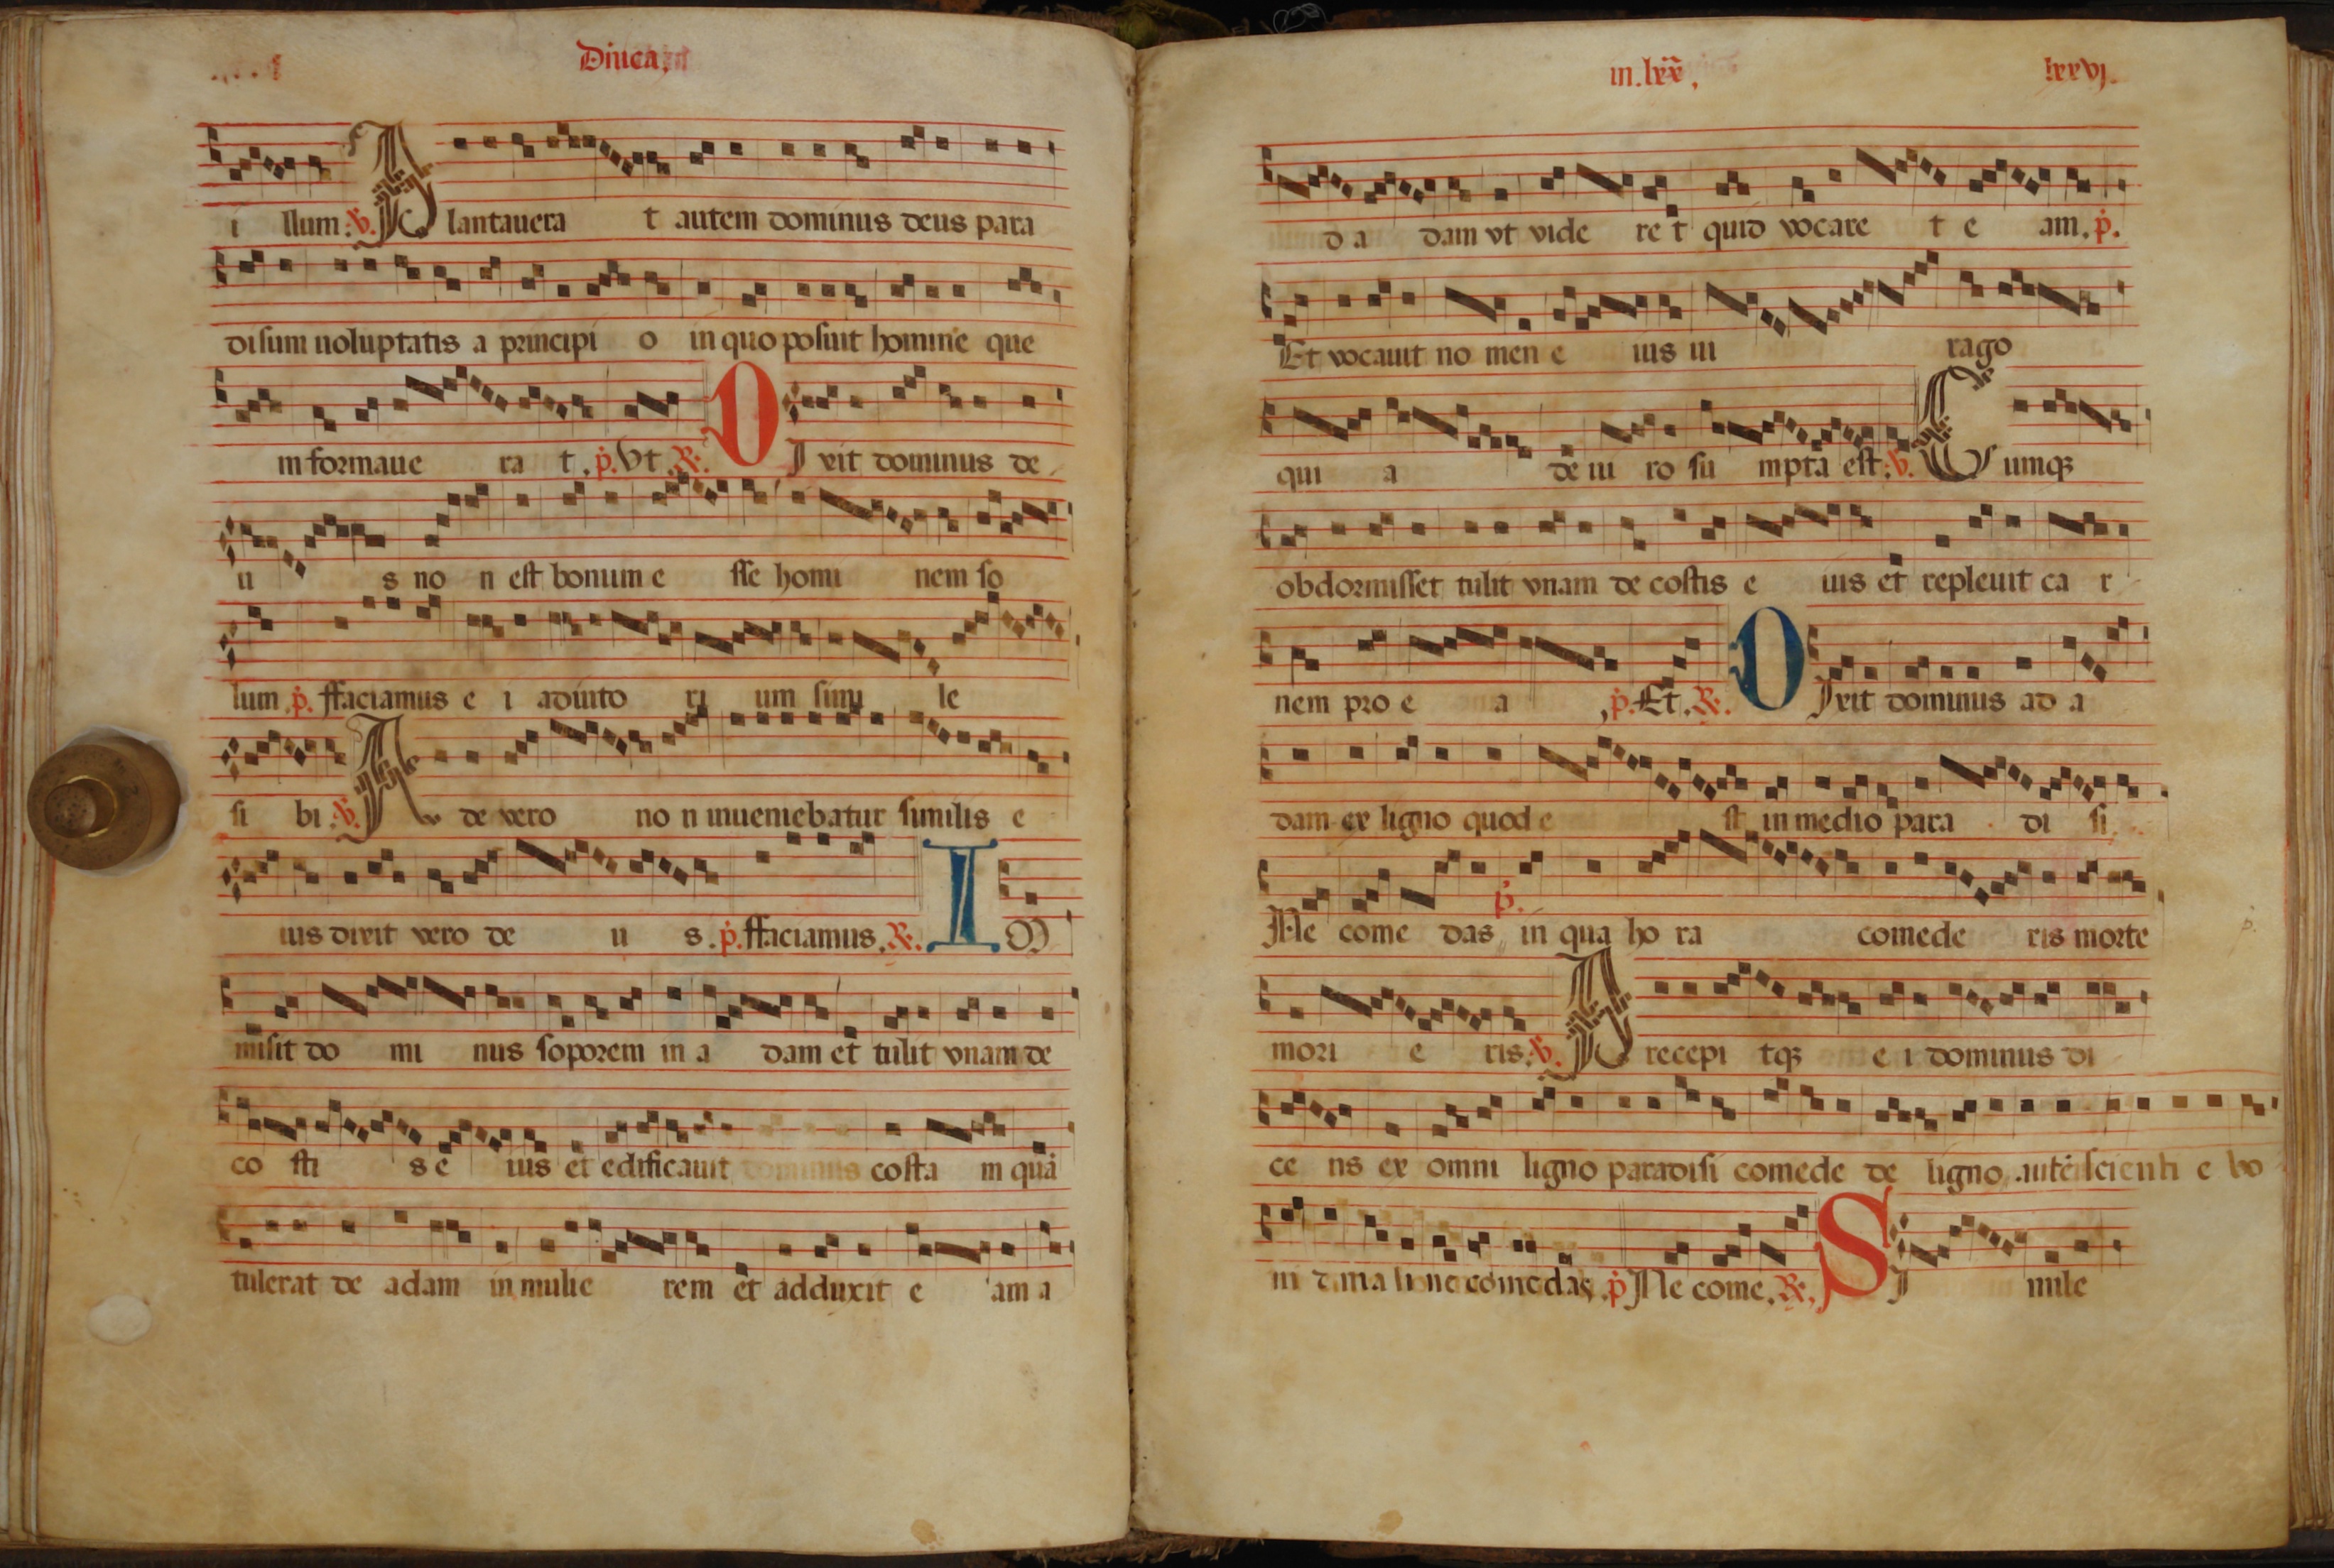 Dñica,
i llum .v. Plantauera t autem dominus deus para
disum uoluptatis a principi o in quo posuit homine que
m formaue ra t .p. Vt .R. D Ixit dominus de
u s no n est bonum e sse homi nem so
lum .p. ffaciamus e i adiuto ri um simi le
si bi .v. A de vero no n inueniebatur similis e
ius dixit vero de u s .p. ffaciamus .R. I M
misit do mi nus soporem in a dam et tulit vnam de
co sti s e ius et edificauit dominus costa m quā
tulerat de adam in mulie rem et adduxit e am a
in .lxx̃. lxxvj.
d a dam vt vide re t quid vocare t e am .p.
Et vocauit no men e ius ui rago
qui a de ui ro su mpta est .v. C umqꝫ
obdormisset tulit vnam de costis e ius et repleuit ca r
nem pro e a .p. Et .R. D Ixit dominus ad a
dam ex ligno quod e st in medio para di si
Ne come das p. in qua ho ra comede ris morte
mori e ris .v. P recepi tqꝫ e i dominus di
ce ns ex omni ligno paradisi comede de ligno autē scienti e bo
ni mali ne comedas .p. Ne come .R. S I mile